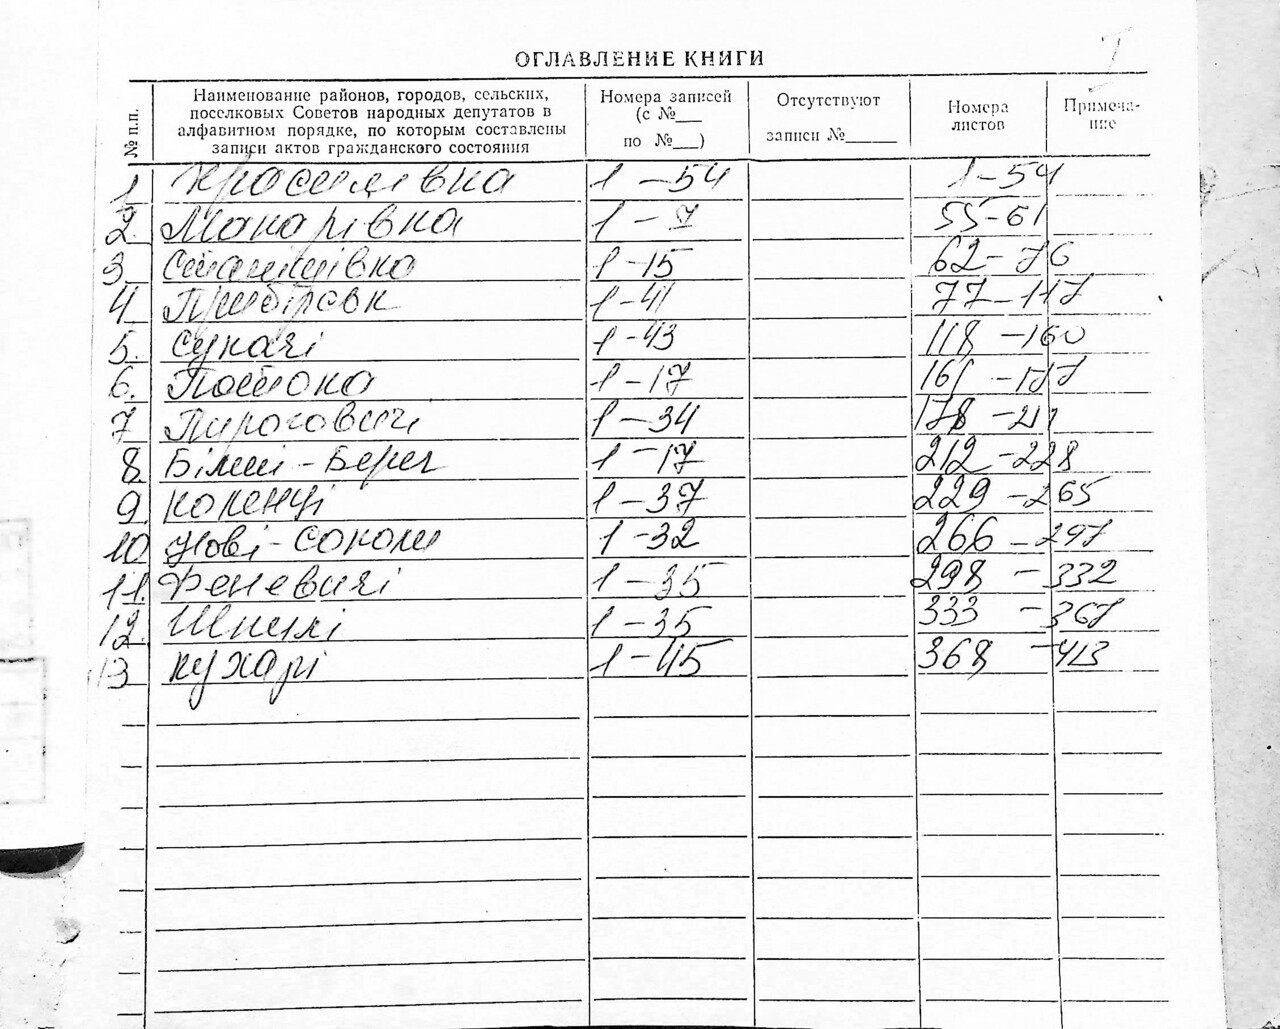 ОГЛАВЛЕНИЕ КНИГИ
№ п.п.
Наименование районов, городов, сельских,
поселковых Советов народных депутатов в
алфавитном порядке, по которым составлены
записи актов гражданского состояния
Номера записей
(с №__
по №__)
Отсутствуют
записи №_____
Номера
листов
Примеча-
ние
1 Красилівка 1-54 1-54
2. Макарівка 1-7 55-61
3 Станішівка 1-15 62-76
4 1-41 77-117
5. Сукачі 1-43 118-160
6. 1-17 161-177
7 Пироговичі 1-34 178-211
8. Білий-Берег 1-17 212-228
9. Коленці 1-37 229-265
10 Нові-Соколи 1-32 266-297
11. Феневичі 1-35 298-332
12. Шпилі 1-35 333-367
13 Кухарі 1-45 368-413